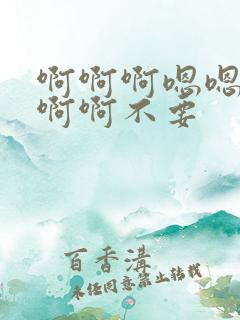 啊啊啊嗯嗯
啊啊不要
百香溝
未经同意禁止转载